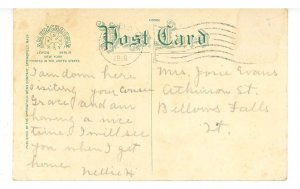 Post Card
NEW YORK
I am down here
visiting your cousin
Grace and am
having a nice
time. I will see
you when I get
home
Nellie H
Mrs. Josie Evans
Atkinson St.
Bellows Falls
Vt.